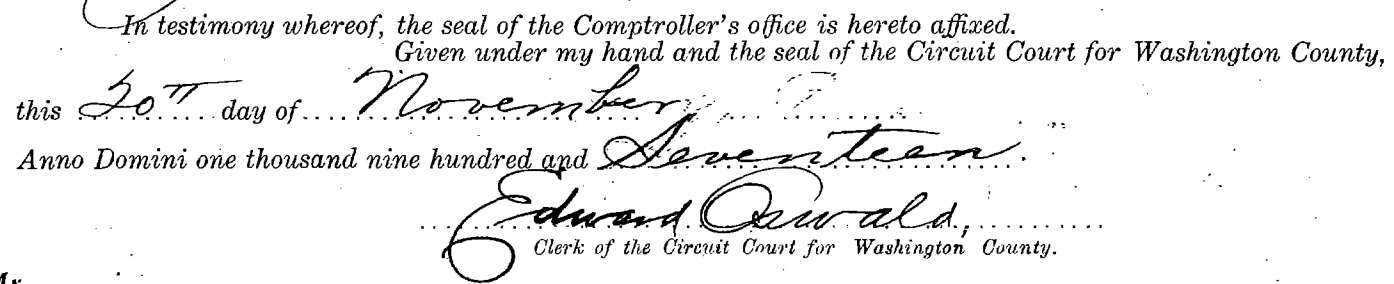 In testimony whereof, the seal of the Comptroller's office is hereto affixed.
Given under my hand and the seal of the Circuit Court for Washington County,
this 20th day of November
Anno Domini one thousand nine hundred and Seventeen.
Edward Oswald,
Clerk of the Circuit Court for Washington County.